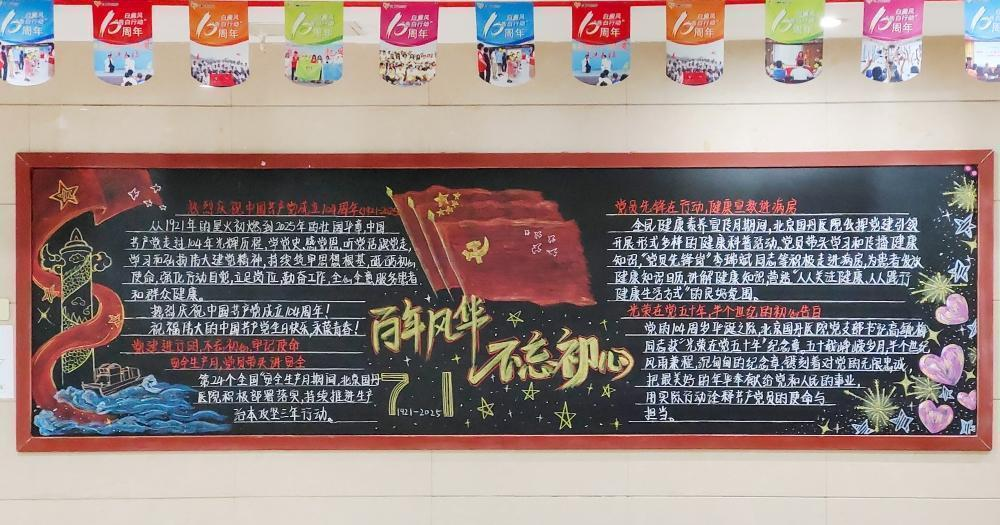 白癜风
告白行动
10周年
白癜风
告白行动
10周年
白癜风
告白行动
10周年
白癜风
告白行动
10周年
白癜风
告白行动
10周年
白癜风
告白行动
10周年
白癜风
告白行动
10周年
白癜风
告白行动
10周年
白癜风
告白行动
10周年
白癜风
告白行动
10周年
热烈庆祝中国共产党成立104周年(1921-2025
从1921年的星火初燃到2025年的壮阔华章,中国
共产党走过104年光辉历程,学党史,感党恩,听党话,跟党走,
学习和弘扬伟大建党精神,持续筑牢思想根基,践行初心
使命,强化行动自觉,立足岗位,勤奋工作,全心全意服务患者
和群众健康。
热烈庆祝中国共产党成立104周年!
祝福伟大的中国共产党生日快乐,永葆青春!
党建进行时,不忘初心,牢记使命
安全生产月,党员带头讲安全
第24个全国"安全生产月"期间,北京国丹
医院积极部署落实,持续推进生产
治本攻坚三年行动。
百年风华
不忘初心
7 1
1921-2025
党员先锋在行动,健康宣教进病房
全民健康素养宣传月期间,北京国丹医院以党建引领
开展形式多样的健康科普活动,党员带头学习和传播健康
知识,"党员先锋岗"李瑞斌同志等积极走进病房,为患者发放
健康知识日历,讲解健康知识,营造"人人关注健康,人人践行
健康生活方式"的良好氛围。
光荣在党五十年,半个世纪的初心告白
党的104周岁华诞之际,北京国丹医院党支部书记高敏梅
同志获"光荣在党五十年"纪念章,五十载峥嵘岁月,半个世纪
风雨兼程,沉甸甸的纪念章,镌刻着对党的无限忠诚
把最美好的年华奉献给党和人民的事业,
用实际行动诠释共产党员的使命与
担当。